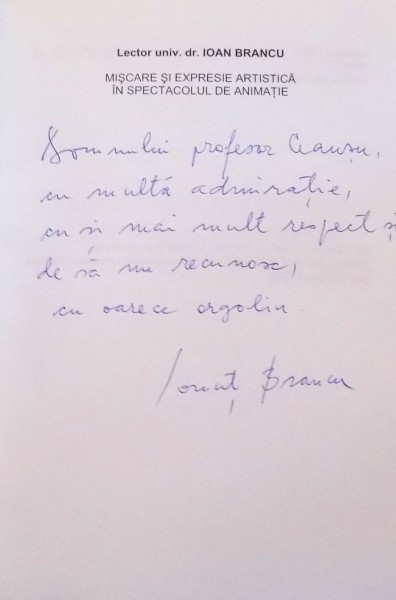 Lector univ. dr. IOAN BRANCU
MIȘCARE ȘI EXPRESIE ARTISTICĂ
ÎN SPECTACOLUL DE ANIMAȚIE
Domnului profesor Ceaușu,
cu multă admirație,
cu și mai mult respect și
de să nu recunosc,
cu oarece orgoliu.
Ionuț Brancu